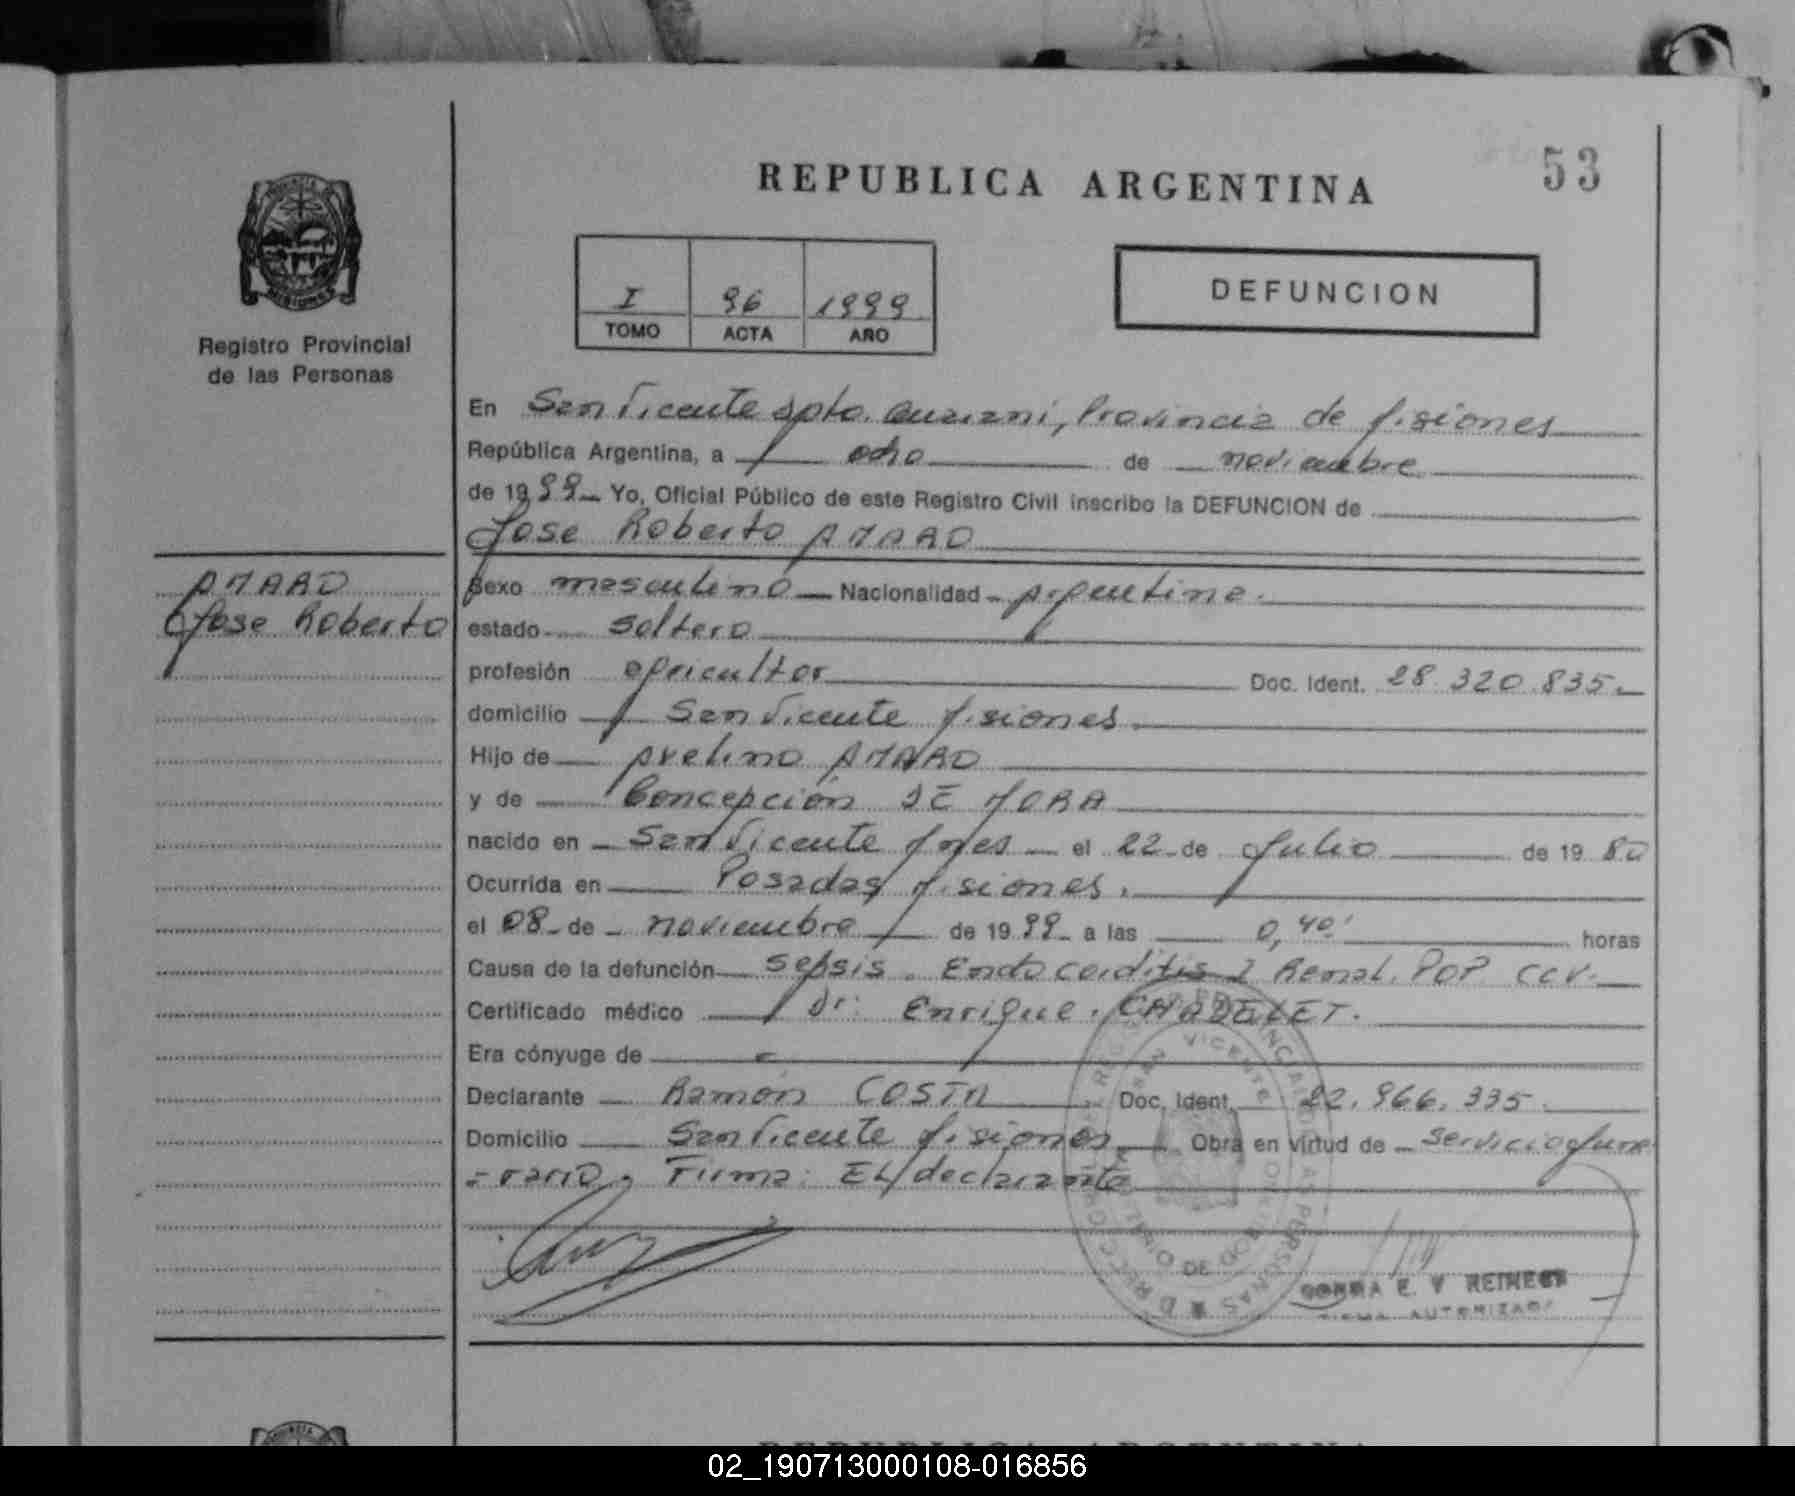 REPUBLICA ARGENTINA
53
I 96 1999
TOMO ACTA AÑO
DEFUNCION
Registro Provincial
de las Personas
En San Vicente Dpto. Guarani, Provincia de Misiones
República Argentina, a ocho de noviembre
de 1999 Yo, Oficial Público de este Registro Civil inscribo la DEFUNCION de
Jose Roberto AMARO
AMARO
Jose Roberto
Sexo masculino Nacionalidad Argentina.
estado soltero
profesión agricultor Doc. Ident. 28.320.835.
domicilio San Vicente Misiones.
Hijo de Avelino AMARO
y de Concepción DE MORA
nacido en San Vicente Mnes el 22 de Julio de 1980
Ocurrida en Posadas Misiones.
el 08 de noviembre de 1999 a las 0,40' horas
Causa de la defunción Sepsis. Endocarditis I Renal. POP CCV.
Certificado médico Dr: Enrique.
Era cónyuge de
Declarante Ramón COSTA Doc. Ident. 22.966.335.
Domicilio San Vicente Misiones Obra en virtud de Servicio fune
=rario. Firma: El declarante
E. V REINECK
AUTORIZADA
REPUBLICA ARGENTINA
02_190713000108-016856